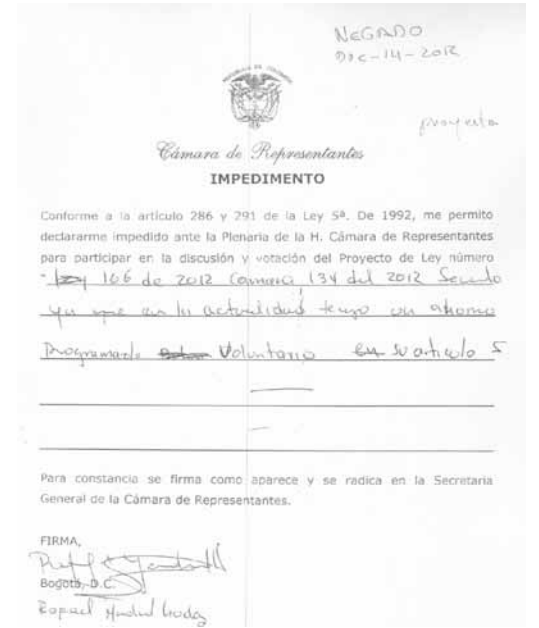 NEGADO
Dic-14-2012
proyecto
Cámara de Representantes
IMPEDIMENTO
Conforme a la artículo 286 y 291 de la Ley 5ª. De 1992, me permito
declararme impedido ante la Plenaria de la H. Cámara de Representantes
para participar en la discusión y votación del Proyecto de Ley número
166 de 2012 Camara, 134 del 2012 Senado
ya que en la actualidad tengo un ahorro
Programado Voluntario en su articulo 5
Para constancia se firma como aparece y se radica en la Secretaria
General de la Cámara de Representantes.
FIRMA,
Bogotá, D.C.
Rafael